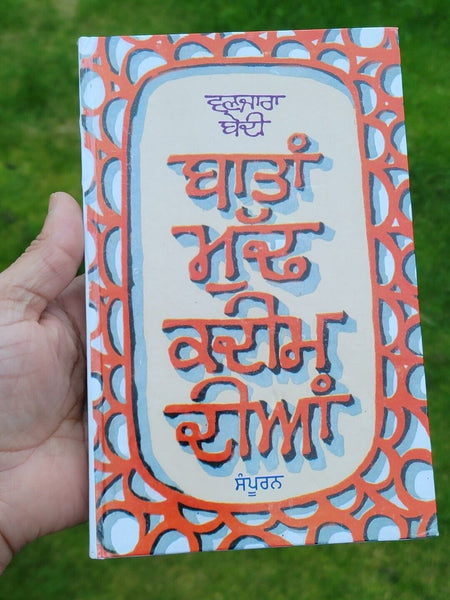 ਵਣਜਾਰਾ
ਬੇਦੀ
ਬਾਤਾਂ
ਮੁੱਢ
ਕਦੀਮ
ਦੀਆਂ
ਸੰਪੂਰਨ